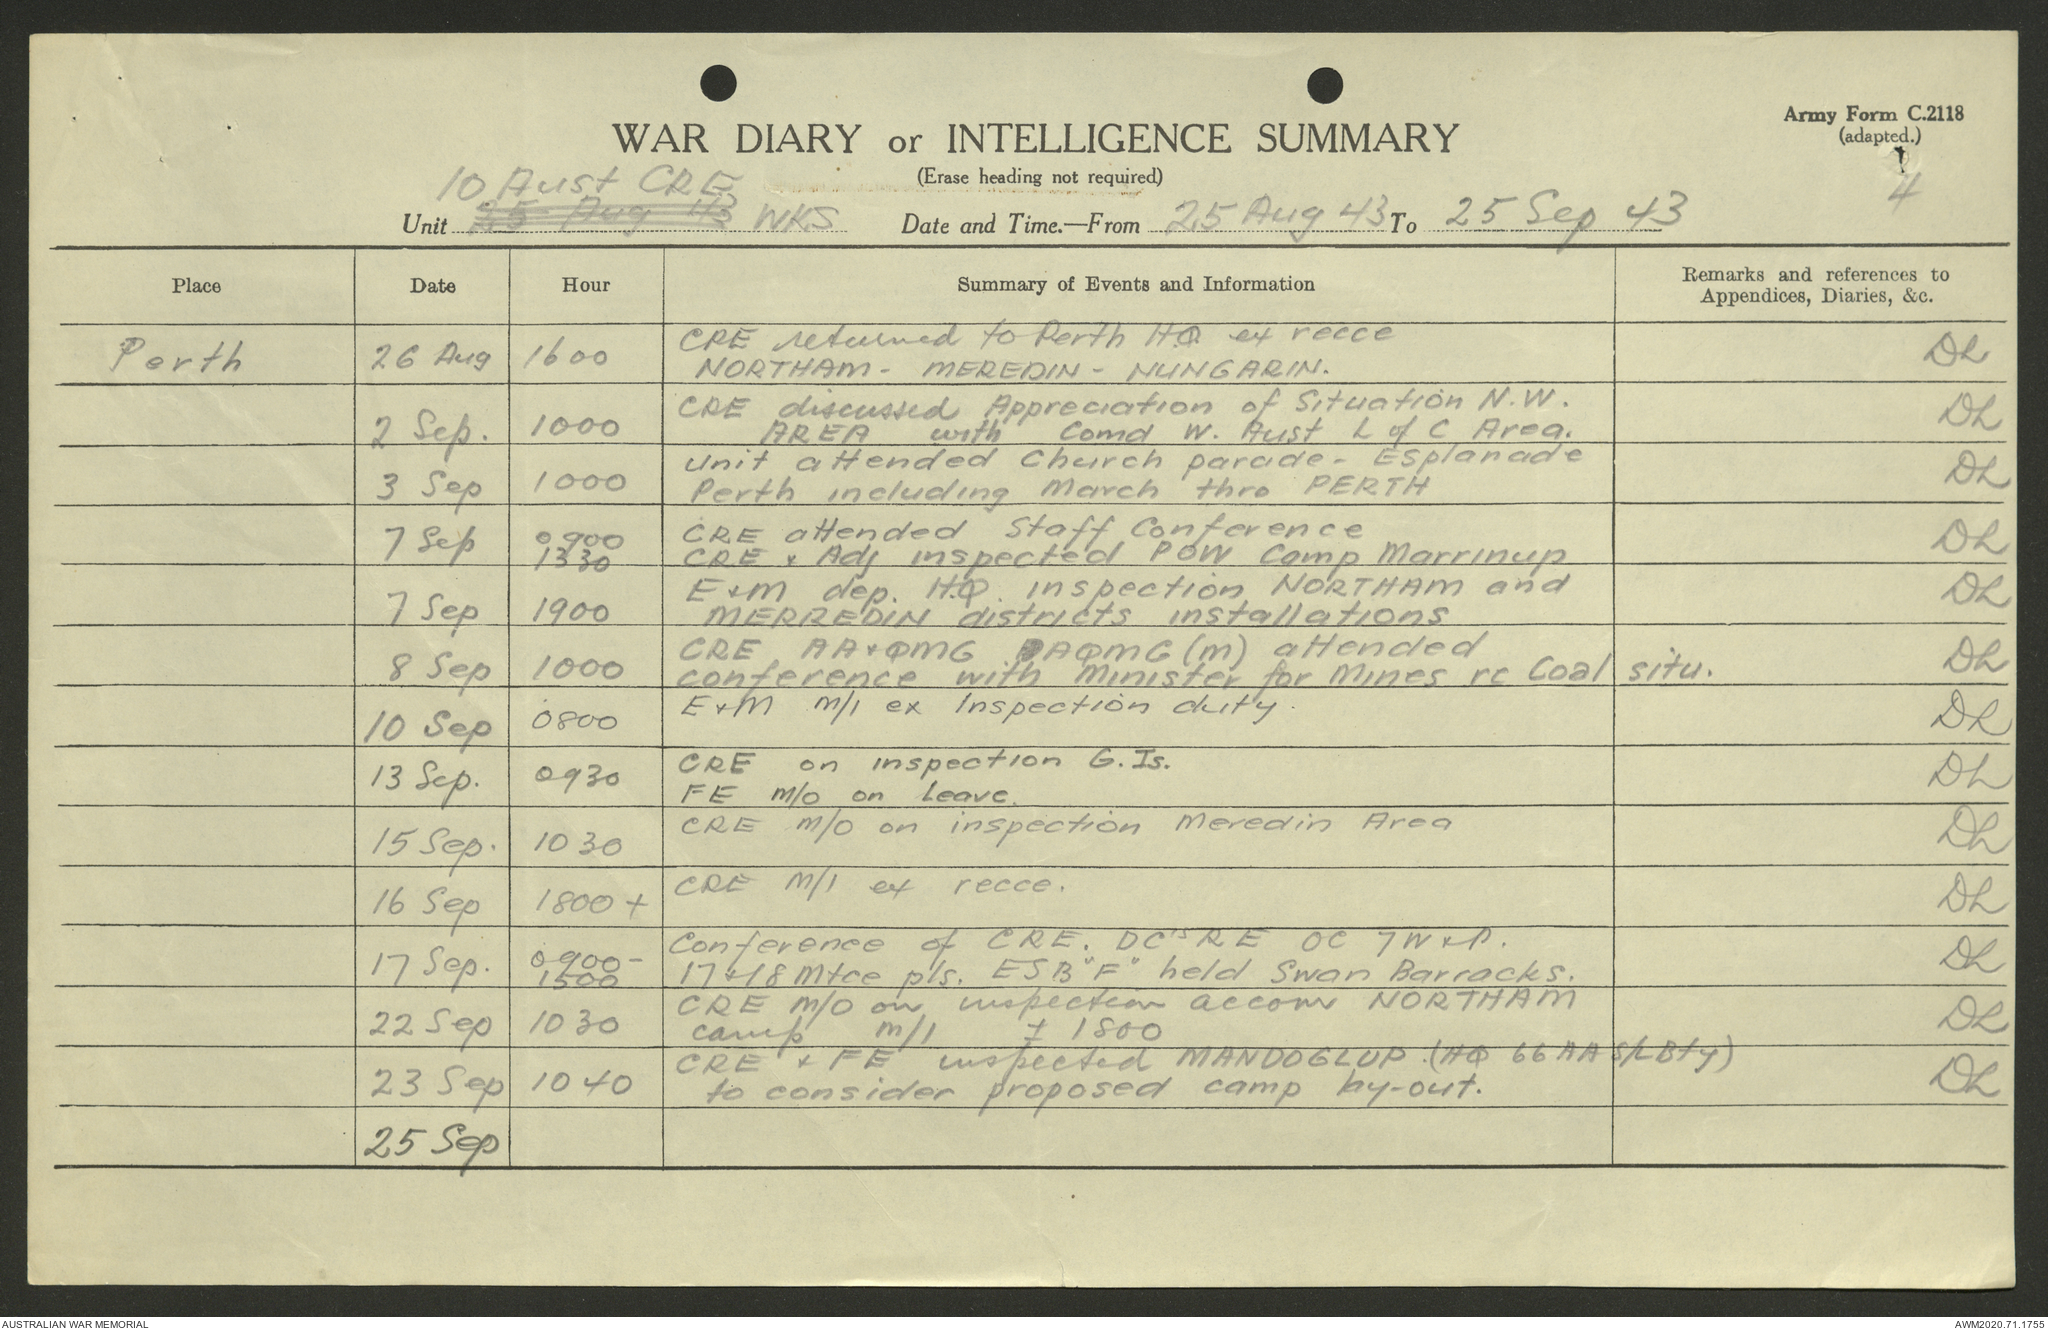 Army Form C.2118
(adapted.)
4
WAR DIARY or INTELLIGENCE SUMMARY
(Erase heading not required)
10 Aust CRE
Unit 25 Aug 43 WKS Date and Time.—From 25 Aug 43 To 25 Sep 43
Place Date Hour Summary of Events and Information Remarks and references to
Appendices, Diaries, &c.
Perth 26 Aug 1600 CRE returned to Perth HQ ex recce DL
NORTHAM - MEREDIN - NUNGARIN.
2 Sep. 1000 CRE discussed Appreciation of Situation N.W. DL
AREA with Comd W. Aust L of C Area.
3 Sep 1000 Unit attended Church parade - Esplanade DL
Perth including March thro PERTH
7 Sep 0900 CRE attended Staff Conference DL
1330 CRE & Adj inspected POW Camp Marrinup
7 Sep 1900 E & M dep. H.Q. inspection NORTHAM and DL
MERREDIN districts installations
8 Sep 1000 CRE AA & QMG DAQMG (M) attended DL
conference with Minister for Mines re Coal situ.
10 Sep 0800 E & M M/I ex Inspection duty. DL
13 Sep. 0930 CRE on inspection G. Is. DL
FE M/O on Leave.
15 Sep. 1030 CRE M/O on inspection Meredin Area DL
16 Sep 1800 + CRE M/I ex recce. DL
17 Sep. 0900 - Conference of CRE. DC'sRE OC 7 W & P. DL
1500 17 & 18 Mtce pls. ESB "F" held Swan Barracks.
22 Sep 1030 CRE M/O on inspection accom NORTHAM DL
camp M/I ± 1800
23 Sep 1040 CRE & FE inspected MANDOGLUP (HQ 66 AA S/L Bty) DL
to consider proposed camp lay-out.
25 Sep
AUSTRALIAN WAR MEMORIAL
AWM2020.71.1755